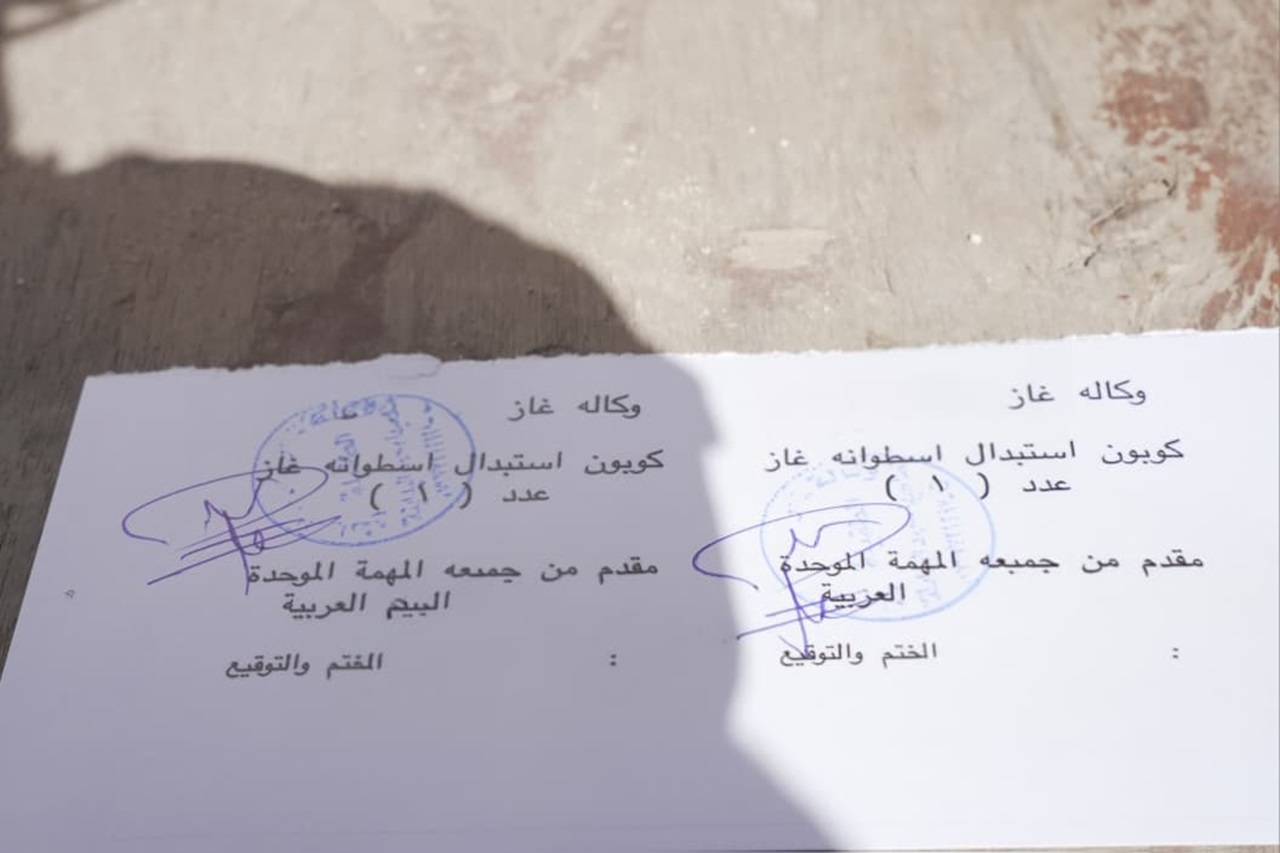 وكاله غاز
كوبون استبدال اسطوانه غاز
عدد ( ١ )
مقدم من جمبعه المهمة الموحدة
العربية
الختم والتوقيع :
وكاله غاز
كوبون استبدال اسطوانه غاز
عدد ( ١ )
مقدم من جمبعه المهمة الموحدة
العربية
الختم والتوقيع :